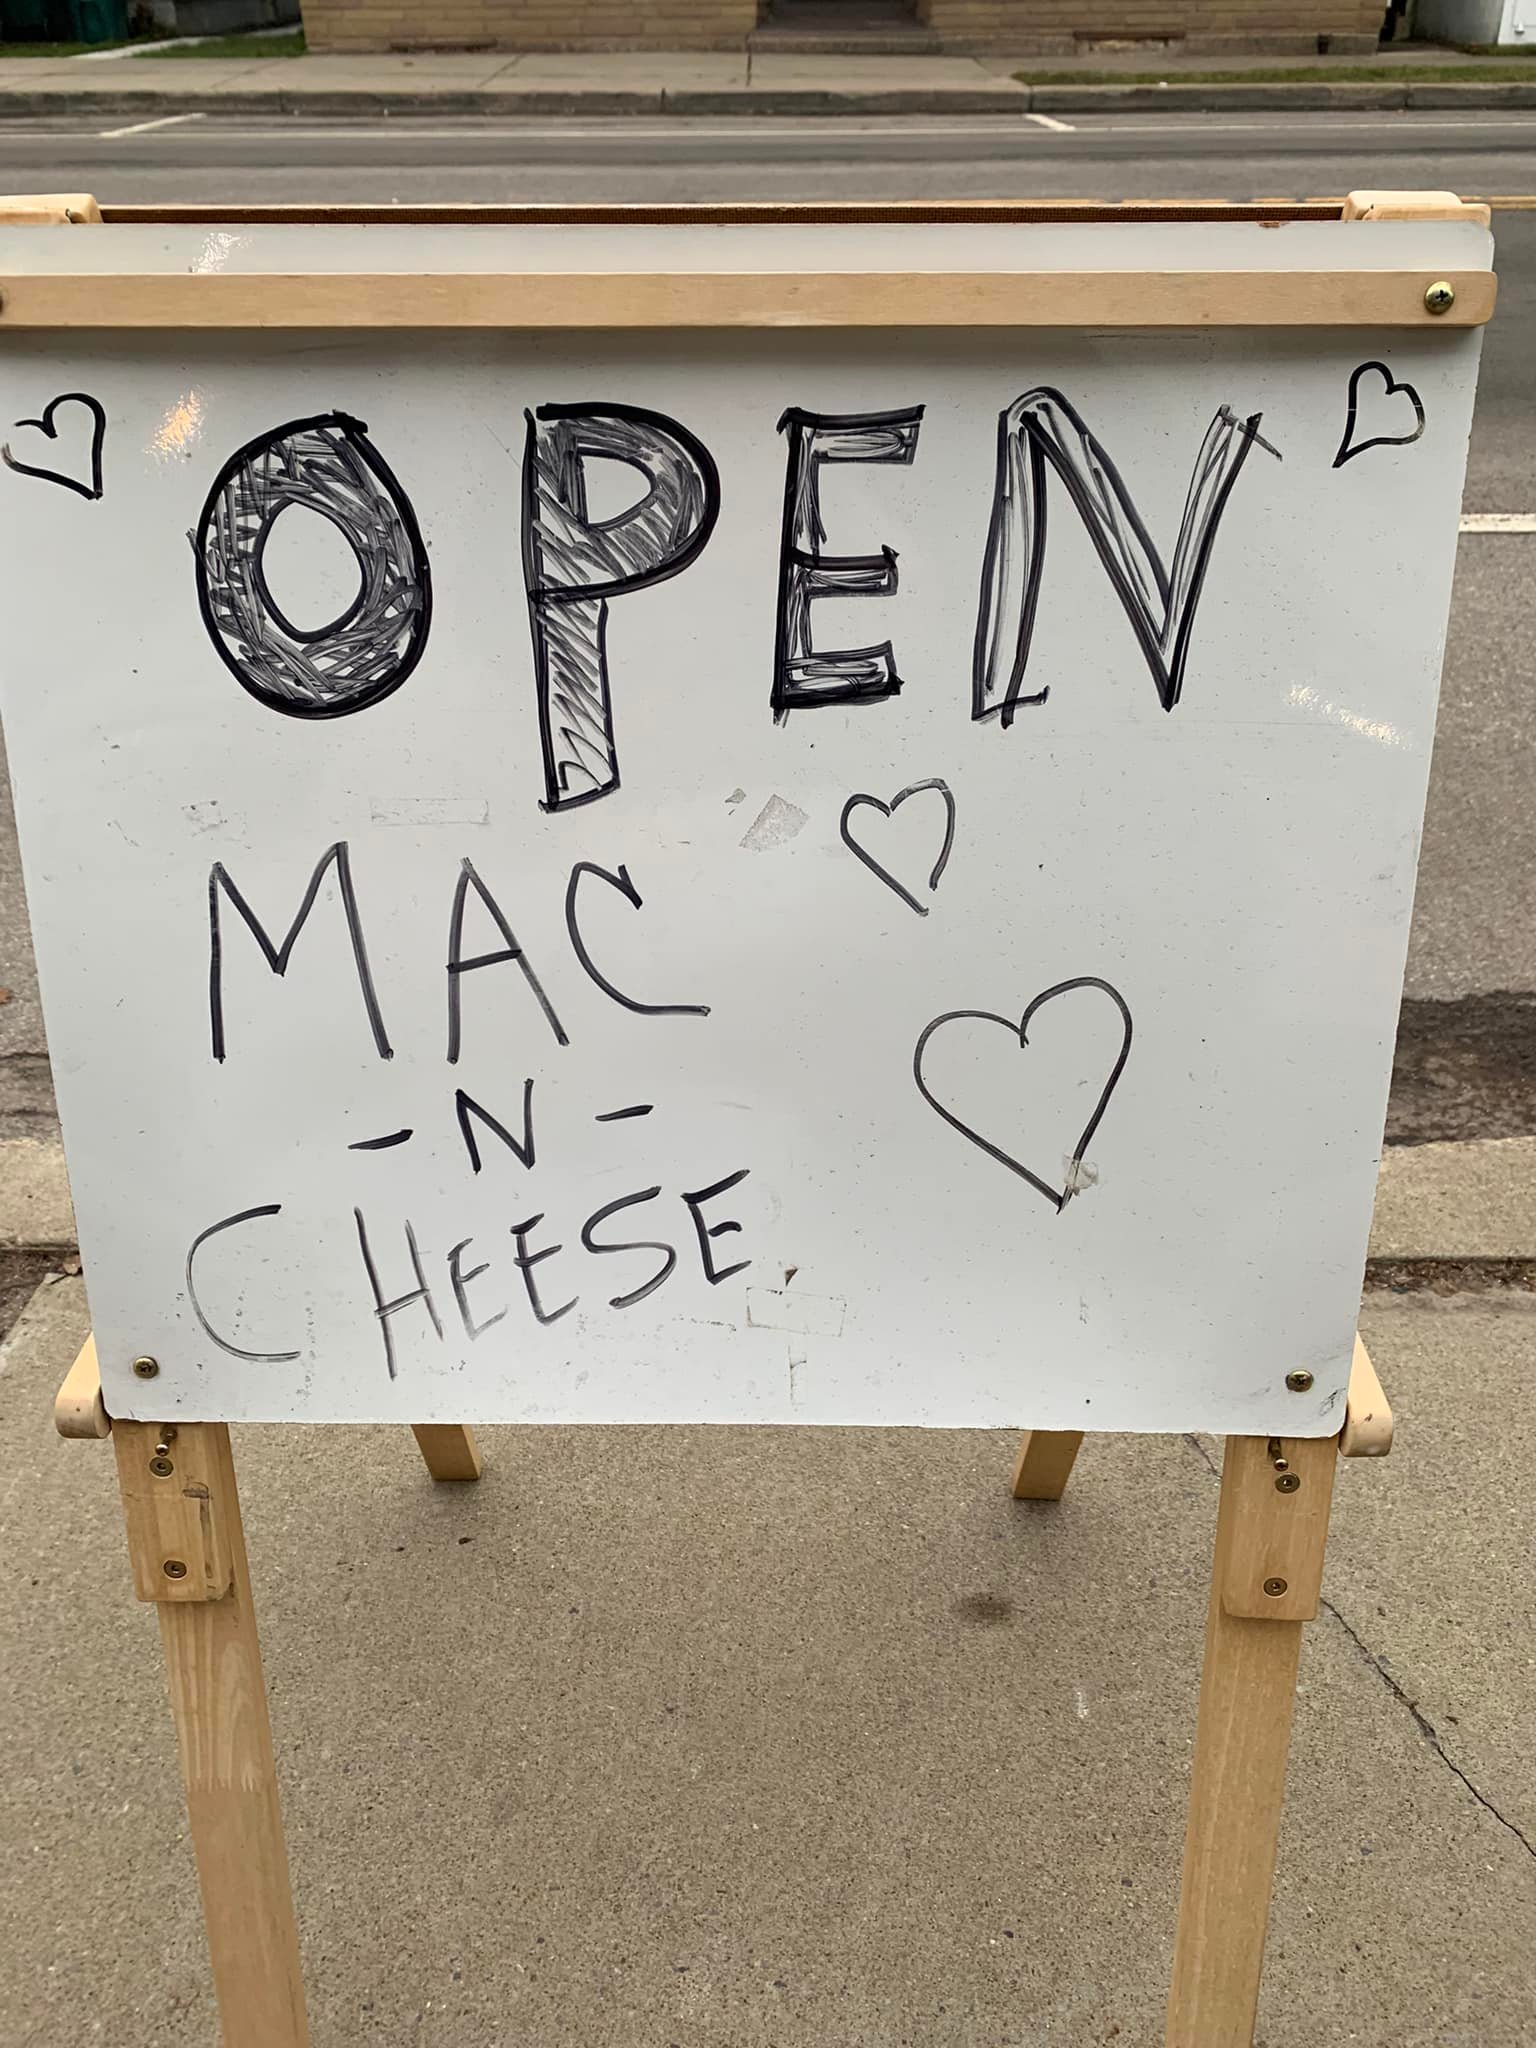 OPEN
MAC
-N-
CHEESE